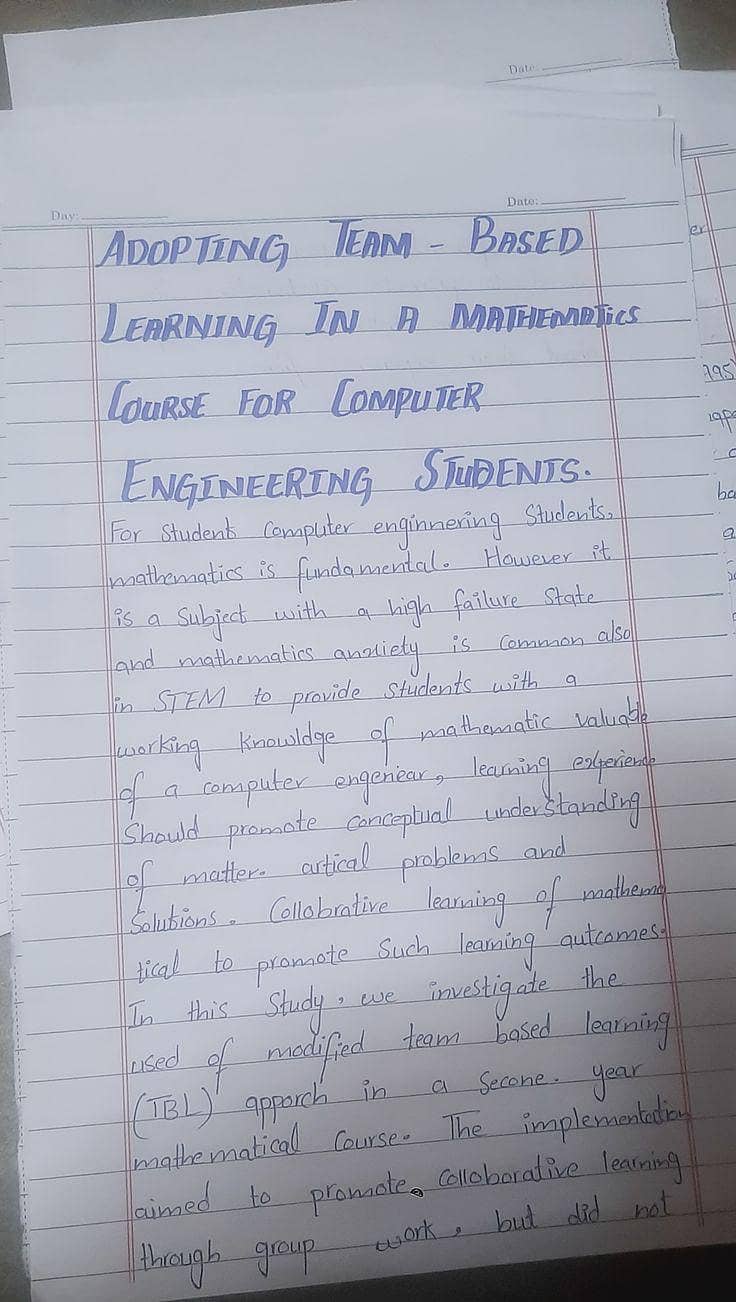 Date:
Day:
Date:
ADOPTING TEAM - BASED
LEARNING IN A MATHEMATICS
COURSE FOR COMPUTER
ENGINEERING STUDENTS.
For Student Computer enginnering Students,
mathematics is fundamental. However it
is a Subject with a high failure State
and mathematics anxiety is common also
in STEM to provide students with a
working knowldge of mathematic valuable
of a computer engeniear, learning experience
Should promote conceptual understanding
of matter. artical problems and
Solutions. Collobrative learning of mathema
tical to promote Such learning outcomes.
In this Study, we investigate the
used of modified team based learning
(TBL) apporch in a Secone. year
mathematical Course. The implementation
aimed to promote. Colloborative learning
through group work, but did not
er
195
ba
a